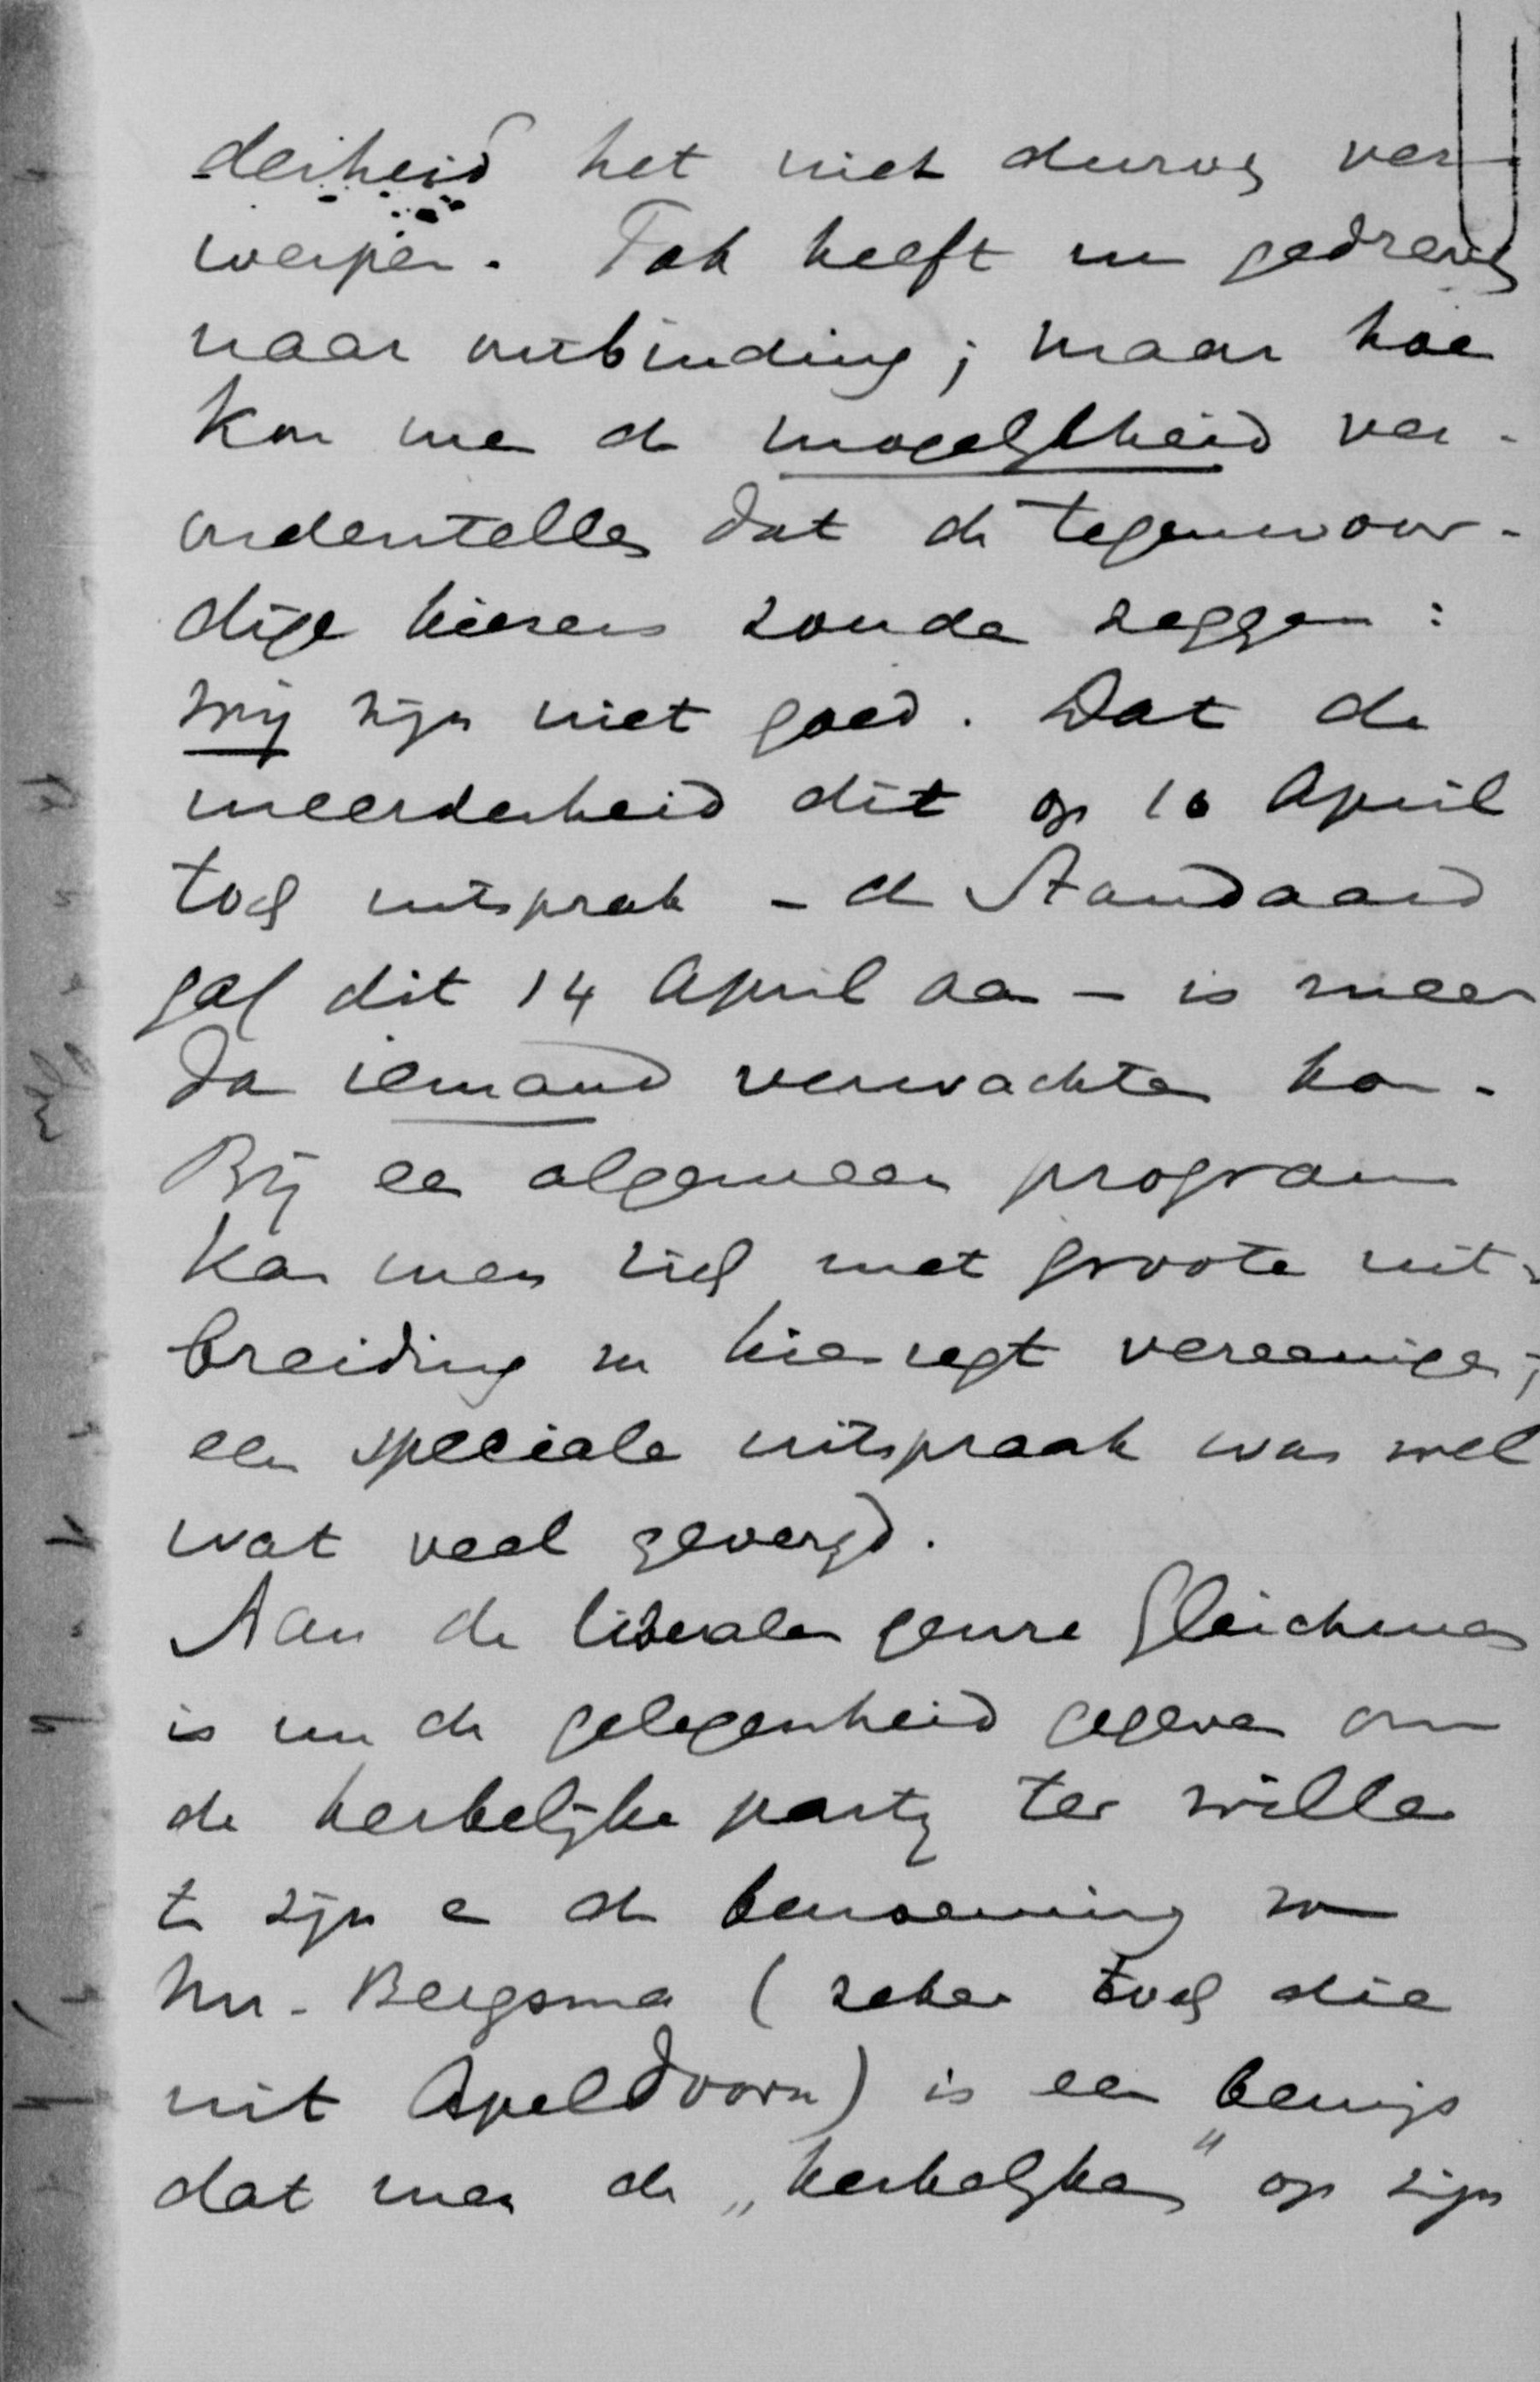 derheid het niet durven ver-
werpen. Tak heeft nu gedreven
naar ontbinding; maar hoe
kon men de mogelijkheid ver-
onderstellen dat de tegenwoor-
dige kiezers zouden zeggen:
wij zijn niet goed. Dat de
meerderheid dit op 10 April
toch uitsprak - de Standaard
gaf dit 14 April aan - is meer
dan iemand verwachten kon.
Bij een algemeen program
kan men zich met groote uit-
breiding van kiesregt vereenigen;
een speciale uitspraak was wel
wat veel gevergd.
Aan de liberalen genre Gleichman
is nu de gelegenheid gegeven om
de kerkelijke partij ter wille
te zijn en de benoeming van
Mr. Bergsma (zeker toch die
uit Apeldoorn) is een bewijs
dat men de „kerkelijken" op zijn